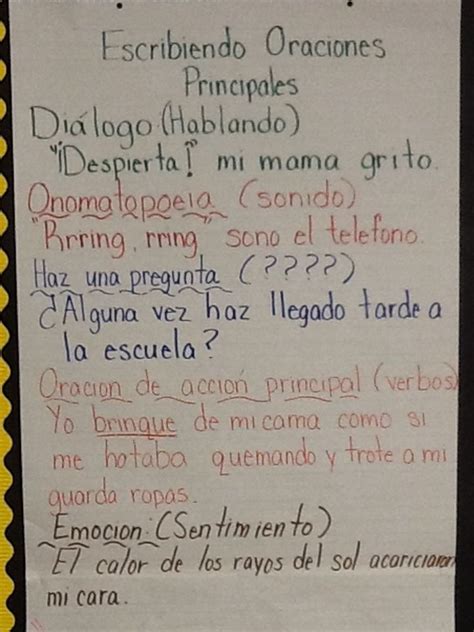 Escribiendo Oraciones
Principales
Diálogo (Hablando)
"¡Despierta!" mi mama grito.
Onomatopoeia (sonido)
"Rrring, rring" sono el telefono.
Haz una pregunta (????)
¿Alguna vez haz llegado tarde a
la escuela?
Oracion de acción principal (verbos)
Yo brinque de mi cama como si
me hotaba quemando y trote a mi
guarda ropas.
Emocion: (Sentimiento)
El calor de los rayos del sol acariciaron
mi cara.